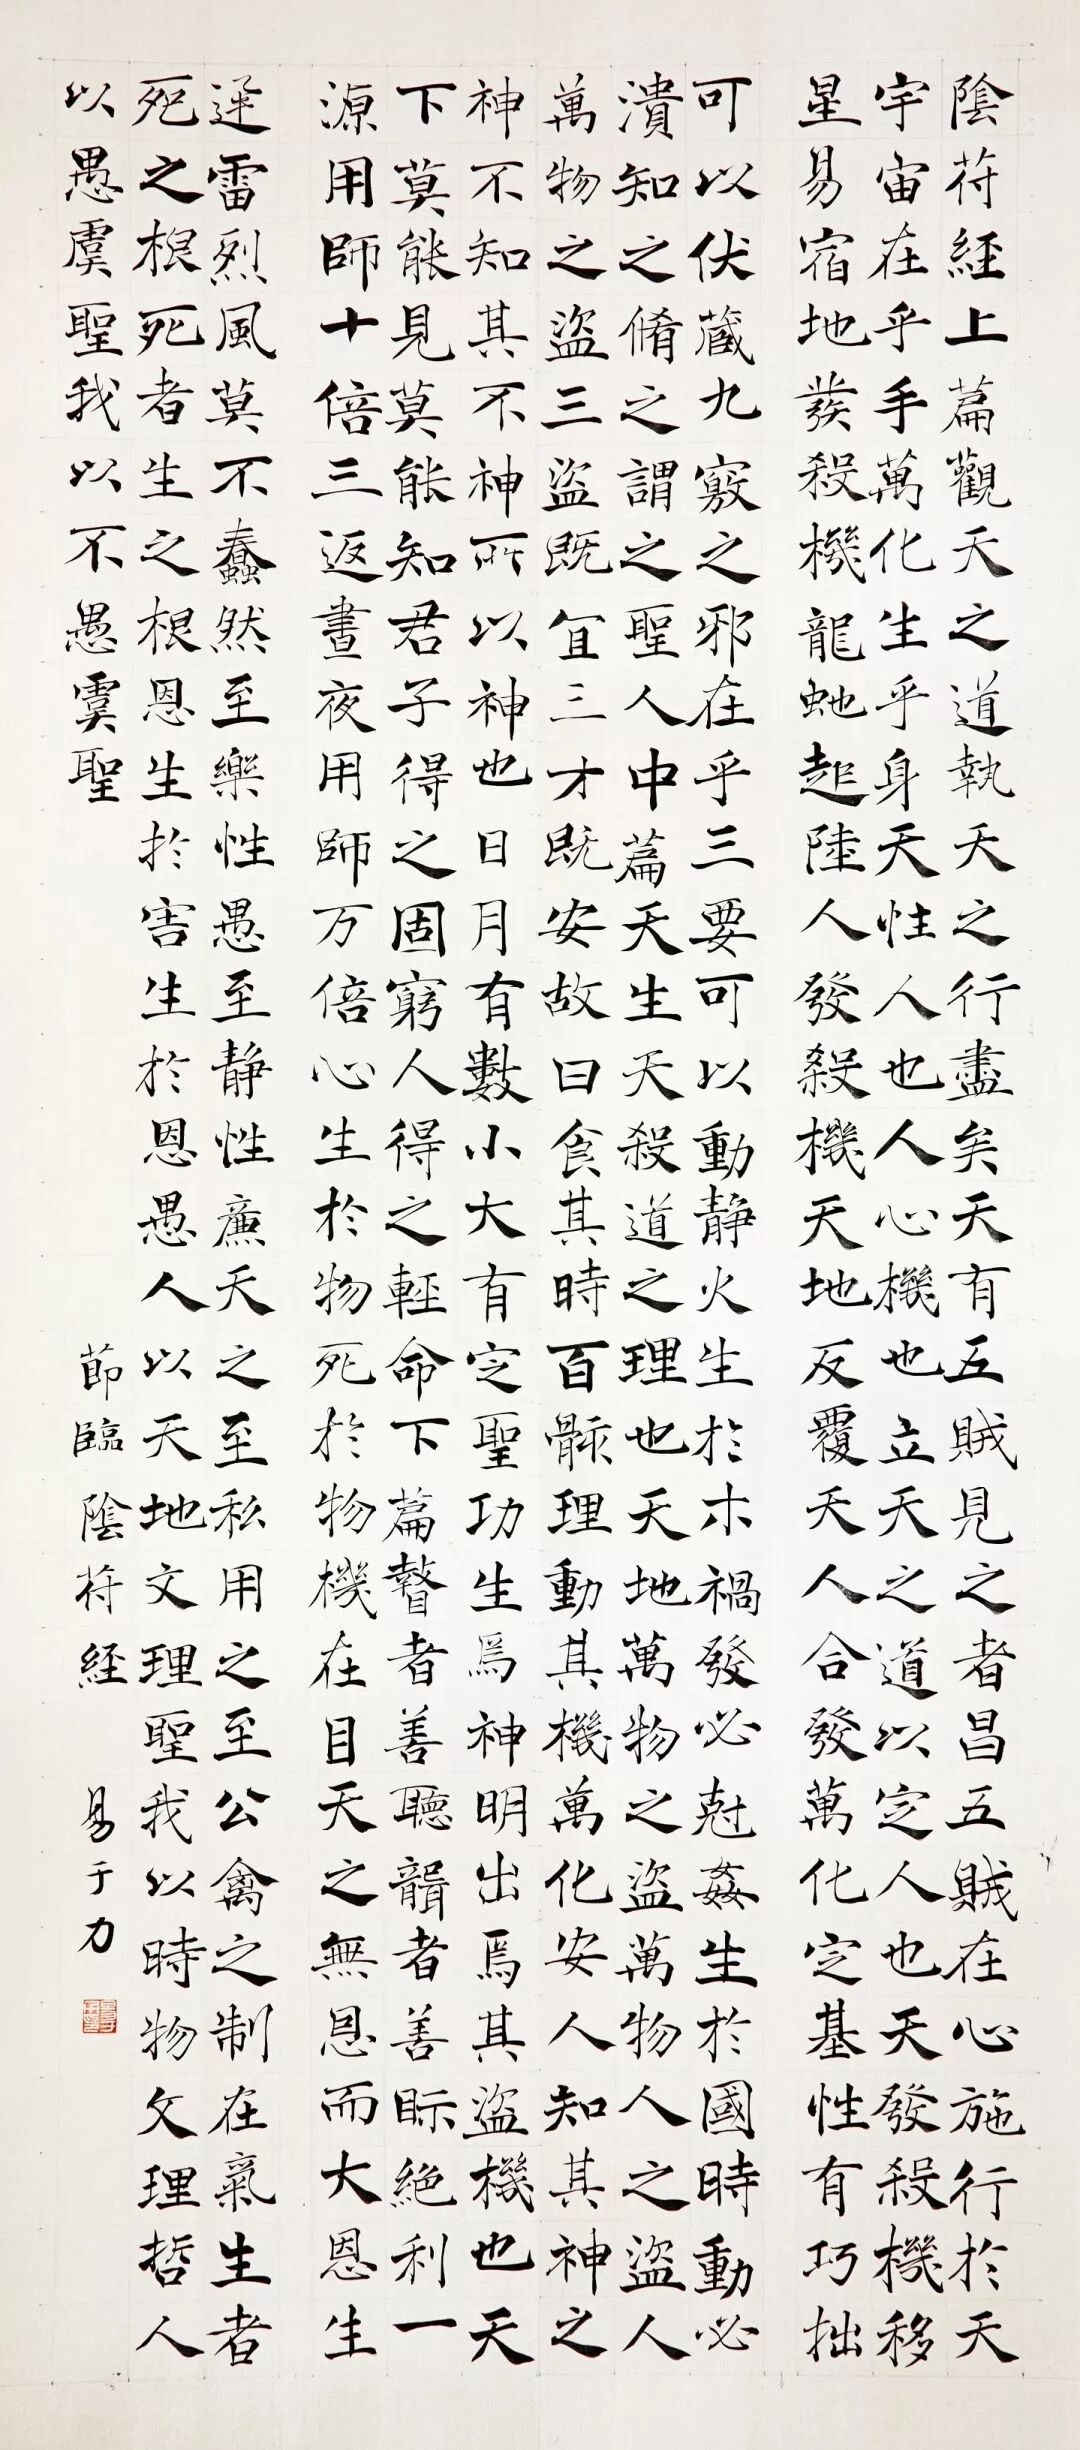 陰符經上篇觀天之道執天之行盡矣天有五賊見之者昌五賊在心施行於天
宇宙在乎手萬化生乎身天性人也人心機也立天之道以定人也天發殺機移
星易宿地發殺機龍虵起陸人發殺機天地反覆天人合發萬化定基性有巧拙
可以伏藏九竅之邪在乎三要可以動静火生於木禍發必尅姦生於國時動必
潰知之脩之謂之聖人中篇天生天殺道之理也天地萬物之盜萬物人之盜人
萬物之盜三盜既宜三才既安故曰食其時百骸理動其機萬化安人知其神之
神不知其不神所以神也日月有數小大有定聖功生焉神明出焉其盜機也天
下莫能見莫能知君子得之固窮人得之輕命下篇瞽者善聽聾者善眎絕利一
源用師十倍三返晝夜用師万倍心生於物死於物機在目天之無恩而大恩生
迅雷烈風莫不蠢然至樂性愚至静性廉天之至私用之至公禽之制在氣生者
死之根死者生之根恩生於害生於恩愚人以天地文理聖我以時物文理哲人
以愚虞聖我以不愚虞聖
節臨陰符経 易于力